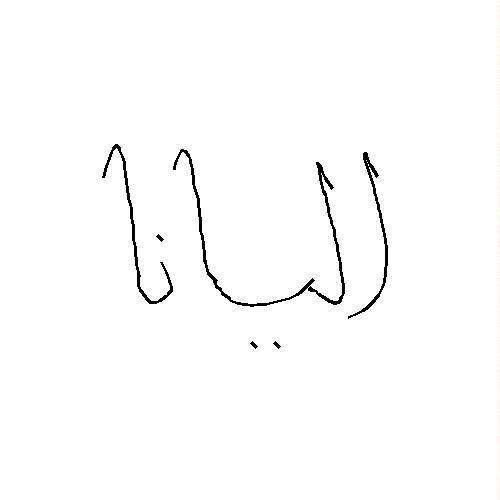 اليانا